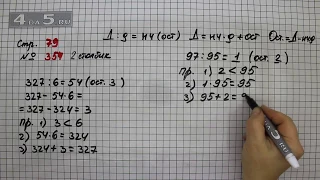 4 fon 5.RU
Стр. 79
№ 354 2 столбик
Δ : g = нч (ост) Δ = нч · g + ост
327 : 6 = 54 (ост. 3)
327 - 54 · 6 =
= 327 - 324 = 3
Пр. 1) 3 < 6
2) 54 · 6 = 324
3) 324 + 3 = 327
97 : 95 = 1 (ост. 2)
Пр. 1) 2 < 95
2) 1 · 95 = 95
3) 95 + 2 =